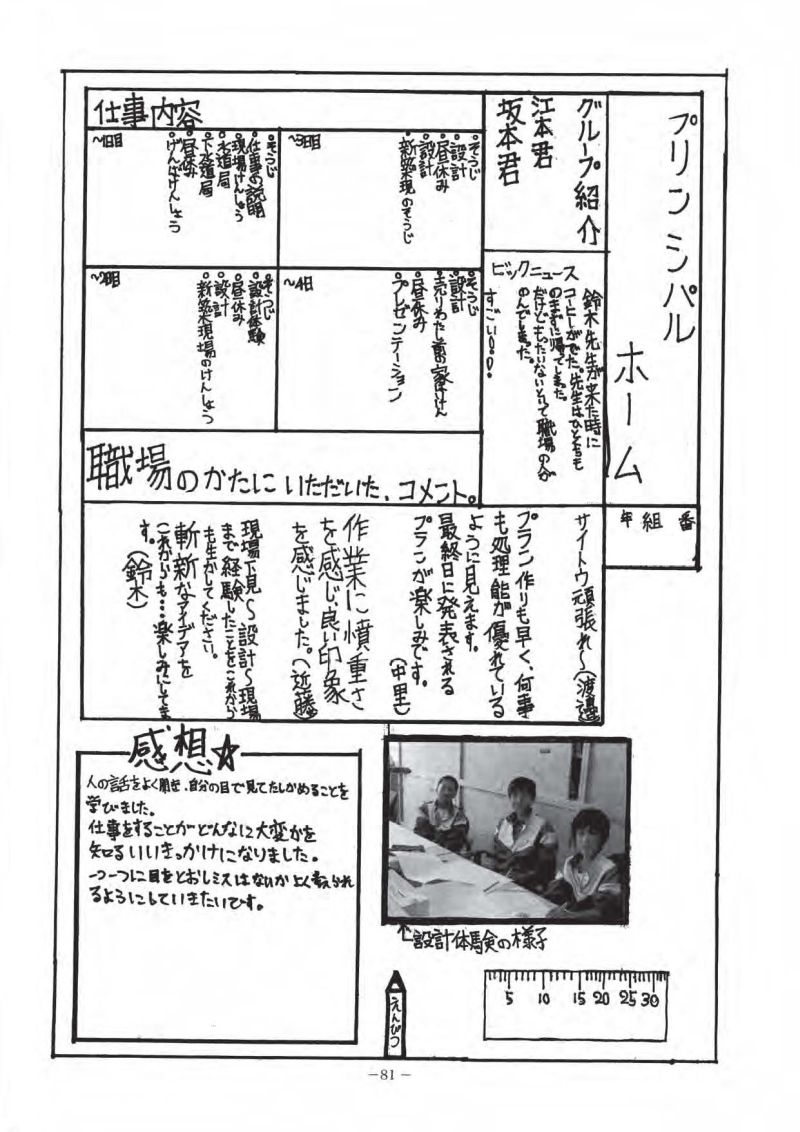 プリンシパル
ホーム
年 組 番
グループ紹介
江本君
坂本君
ビックニュース
鈴木先生が来た時に
コーヒーがでた。先生はひとくちも
のまずに帰ってしまった。
だけどもったいないといって職場の人が
のんでしまった。
すごい!!
仕事内容
~1日目
・そうじ
・仕事の説明
・現場けんしょう
・水道局
・下水道局
・昼休み
・げんばけんしょう
~2日目
・そうじ
・設計体験
・昼休み
・設計
・新築現場のけんしょう
~3日目
・そうじ
・設計
・昼休み
・設計
・新築現のそうじ
~4日
・そうじ
・設計
・売りわたす前の家けけん
・昼休み
・プレゼンテーション
職場のかたにいただいた、コメント。
サイトウ頑張れ~(渡邊)
プラン作りも早く、何事
も処理能が優れている
ように見えます。
最終日に発表される
プランが楽しみです。
(中里)
作業に憤重さ
を感じ良い印象
を感じました。(近藤)
現場下見~設計~現場
まで経験したことをこれから
も生かしてください。
斬新なアイデアを
これからも…楽しみにしてま
す。(鈴木)
感想☆
人の話をよく聞き、自分の目で見てたしかめることを
学びました。
仕事をすることがどんなに大変かを
知るいいきっかけになりました。
一つ一つに目をとおしミスはないかよく考えられ
るようにしていきたいです。
設計体験の様子
えんぴつ
5 10 15 20 25 30
-81-